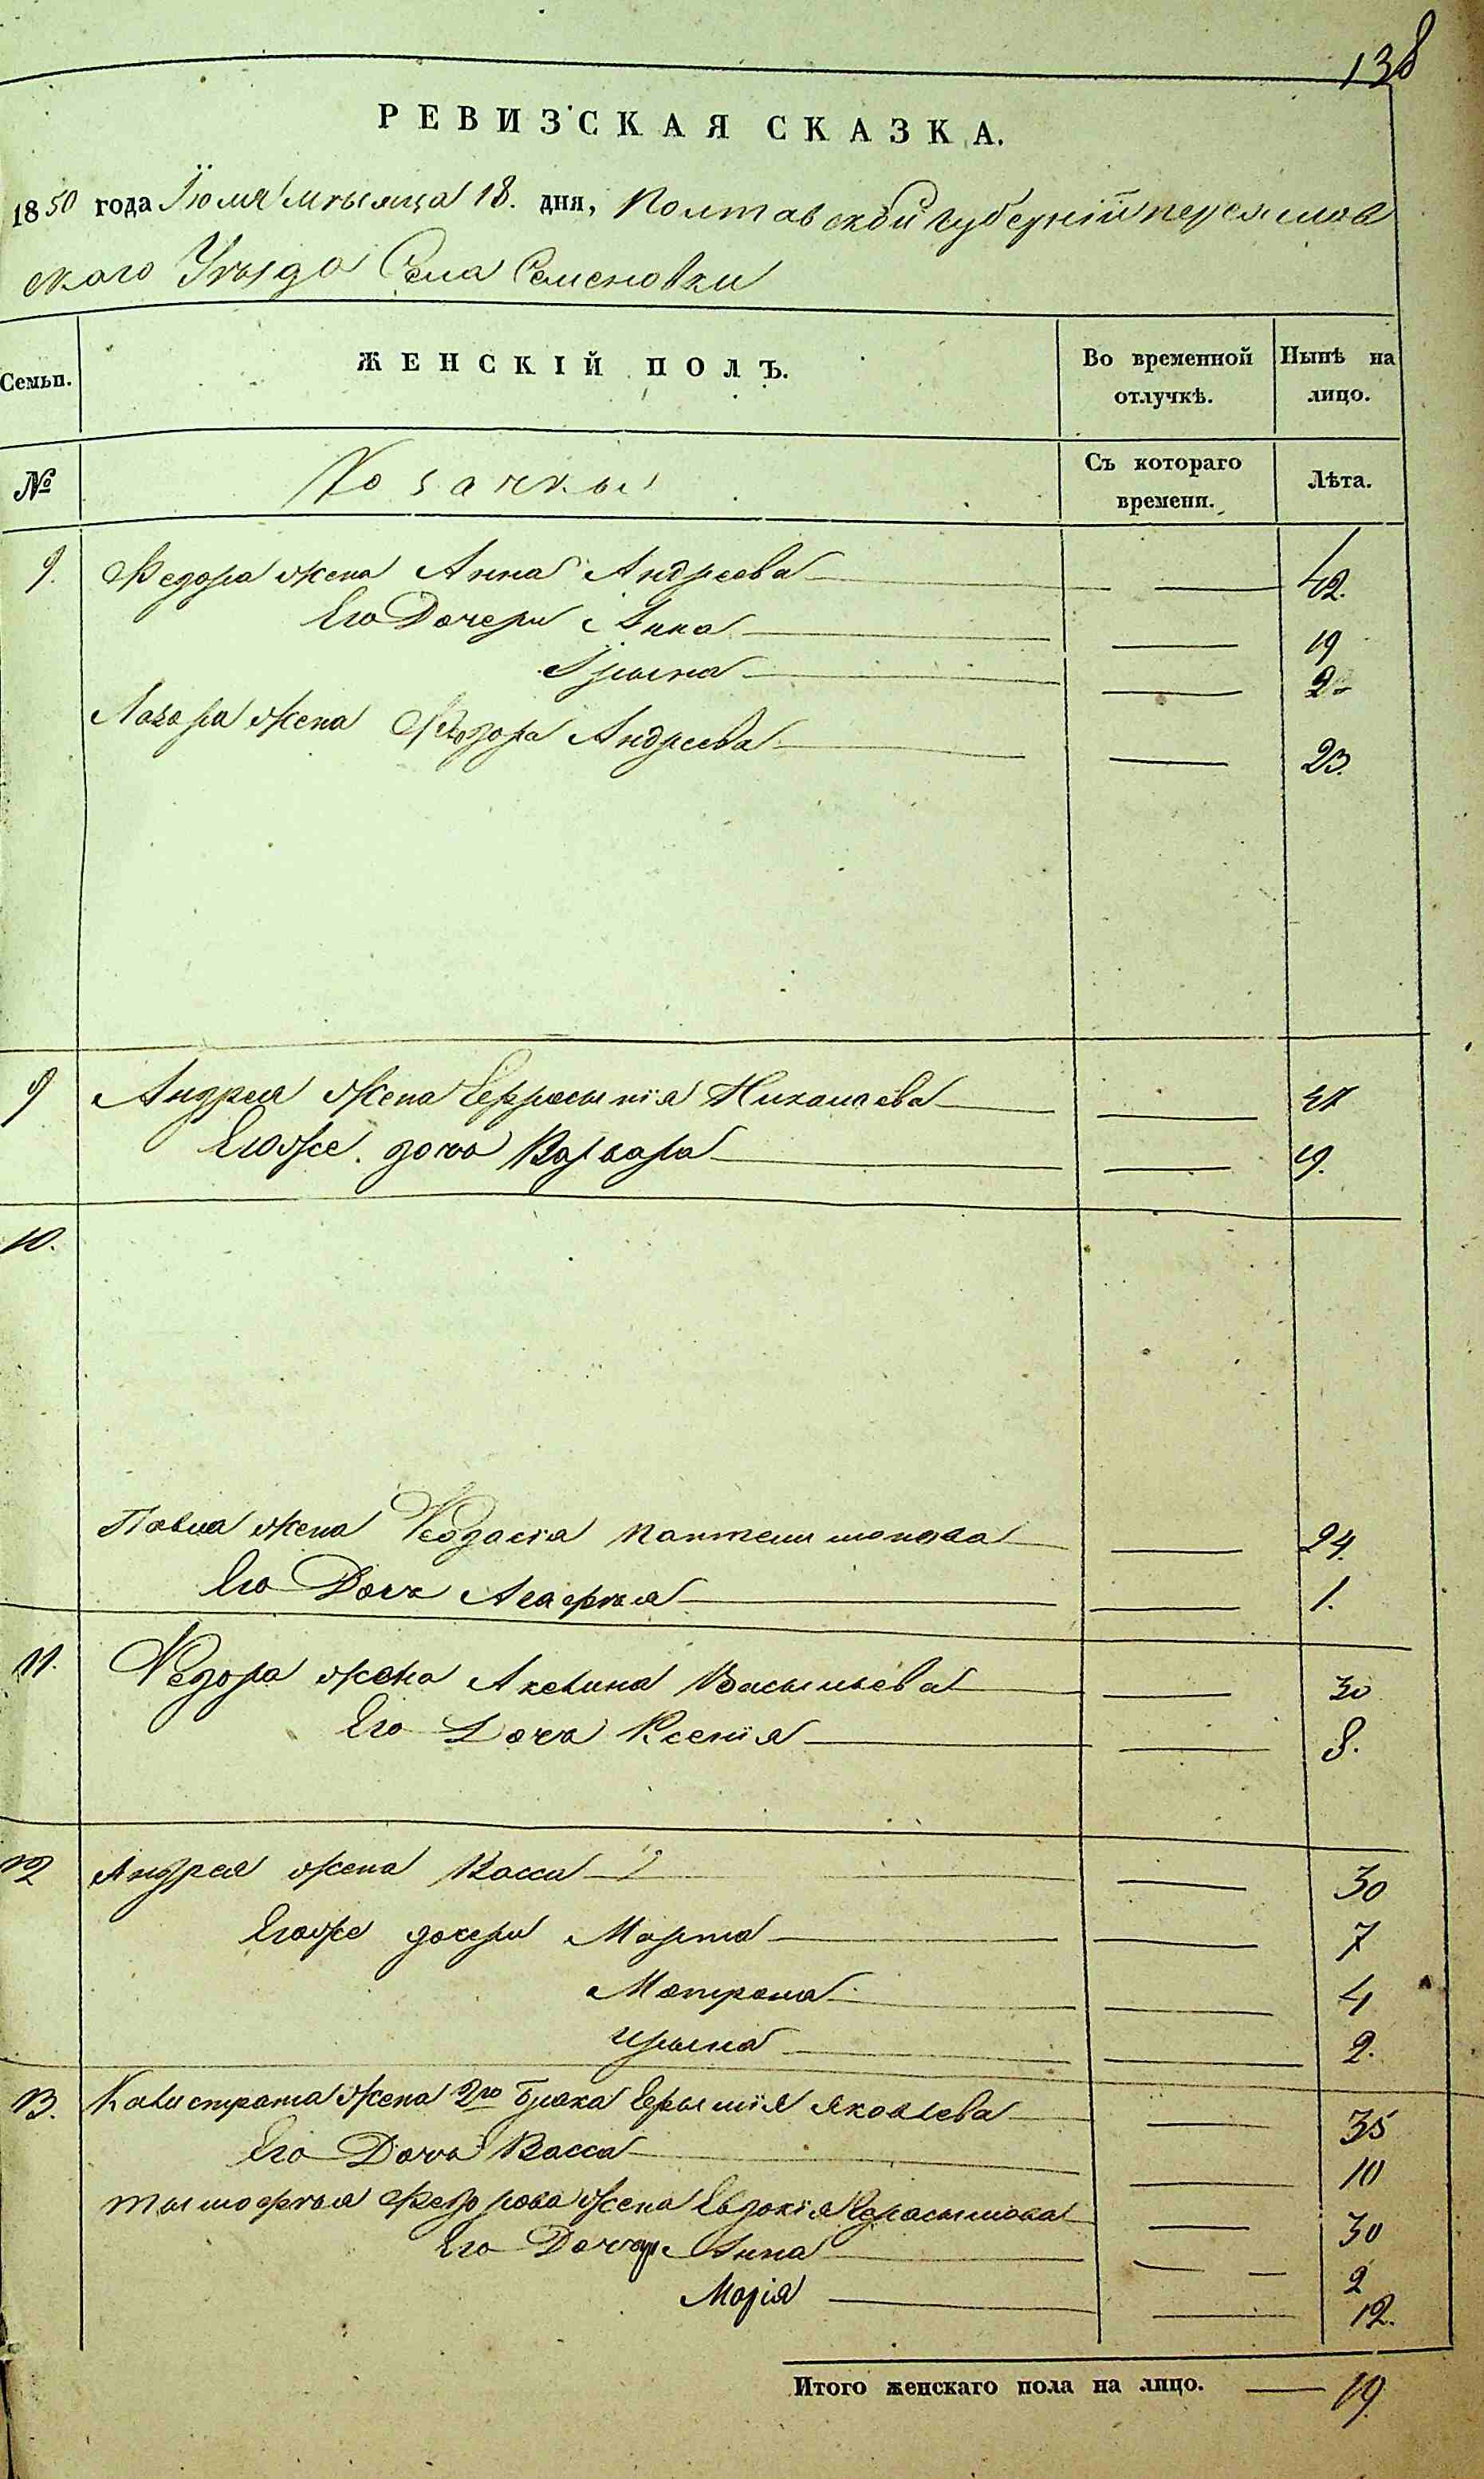 138
РЕВИЗСКАЯ СКАЗКА.
1850 года Іюля мѣсяца 18. дня, Полтавской Губерніи переяслов
ского Уѣзда Села Семеновки
Семьи. ЖЕНСКІЙ ПОЛЪ. Во временной отлучкѣ. Нынѣ на лицо.
№ Козачки Съ котораго времени. Лѣта.
9. Федора жена Анна Андреева — 42.
Его Дочери Анна — 19
Ірина — 2
Лазора жена Андреева — 23.
9 Андрея жена Ефросинія Николаева —
Егоже дочь Варвара — 19.
10.
Павла жена Ѳеодосія Пантелимонова — 24.
Его Дочь Агафія — 1.
11. Ѳедора жена Акелина Васильева — 30
Его Дочь Ксенія — 8.
12 Андрея жена Васса — 30
Егоже дочери Марта — 7
Матрона — 4
Ирина — 2.
13. Калистрата Жена 2го брака Ефимія Яковлева — 35
Его Дочь Васса — 10
Тымофѣя Федорова Жена Евдокія Герасимова — 30
Его Дочери Анна — 2
Марія — 12.
Итого женскаго пола на лицо. — 19